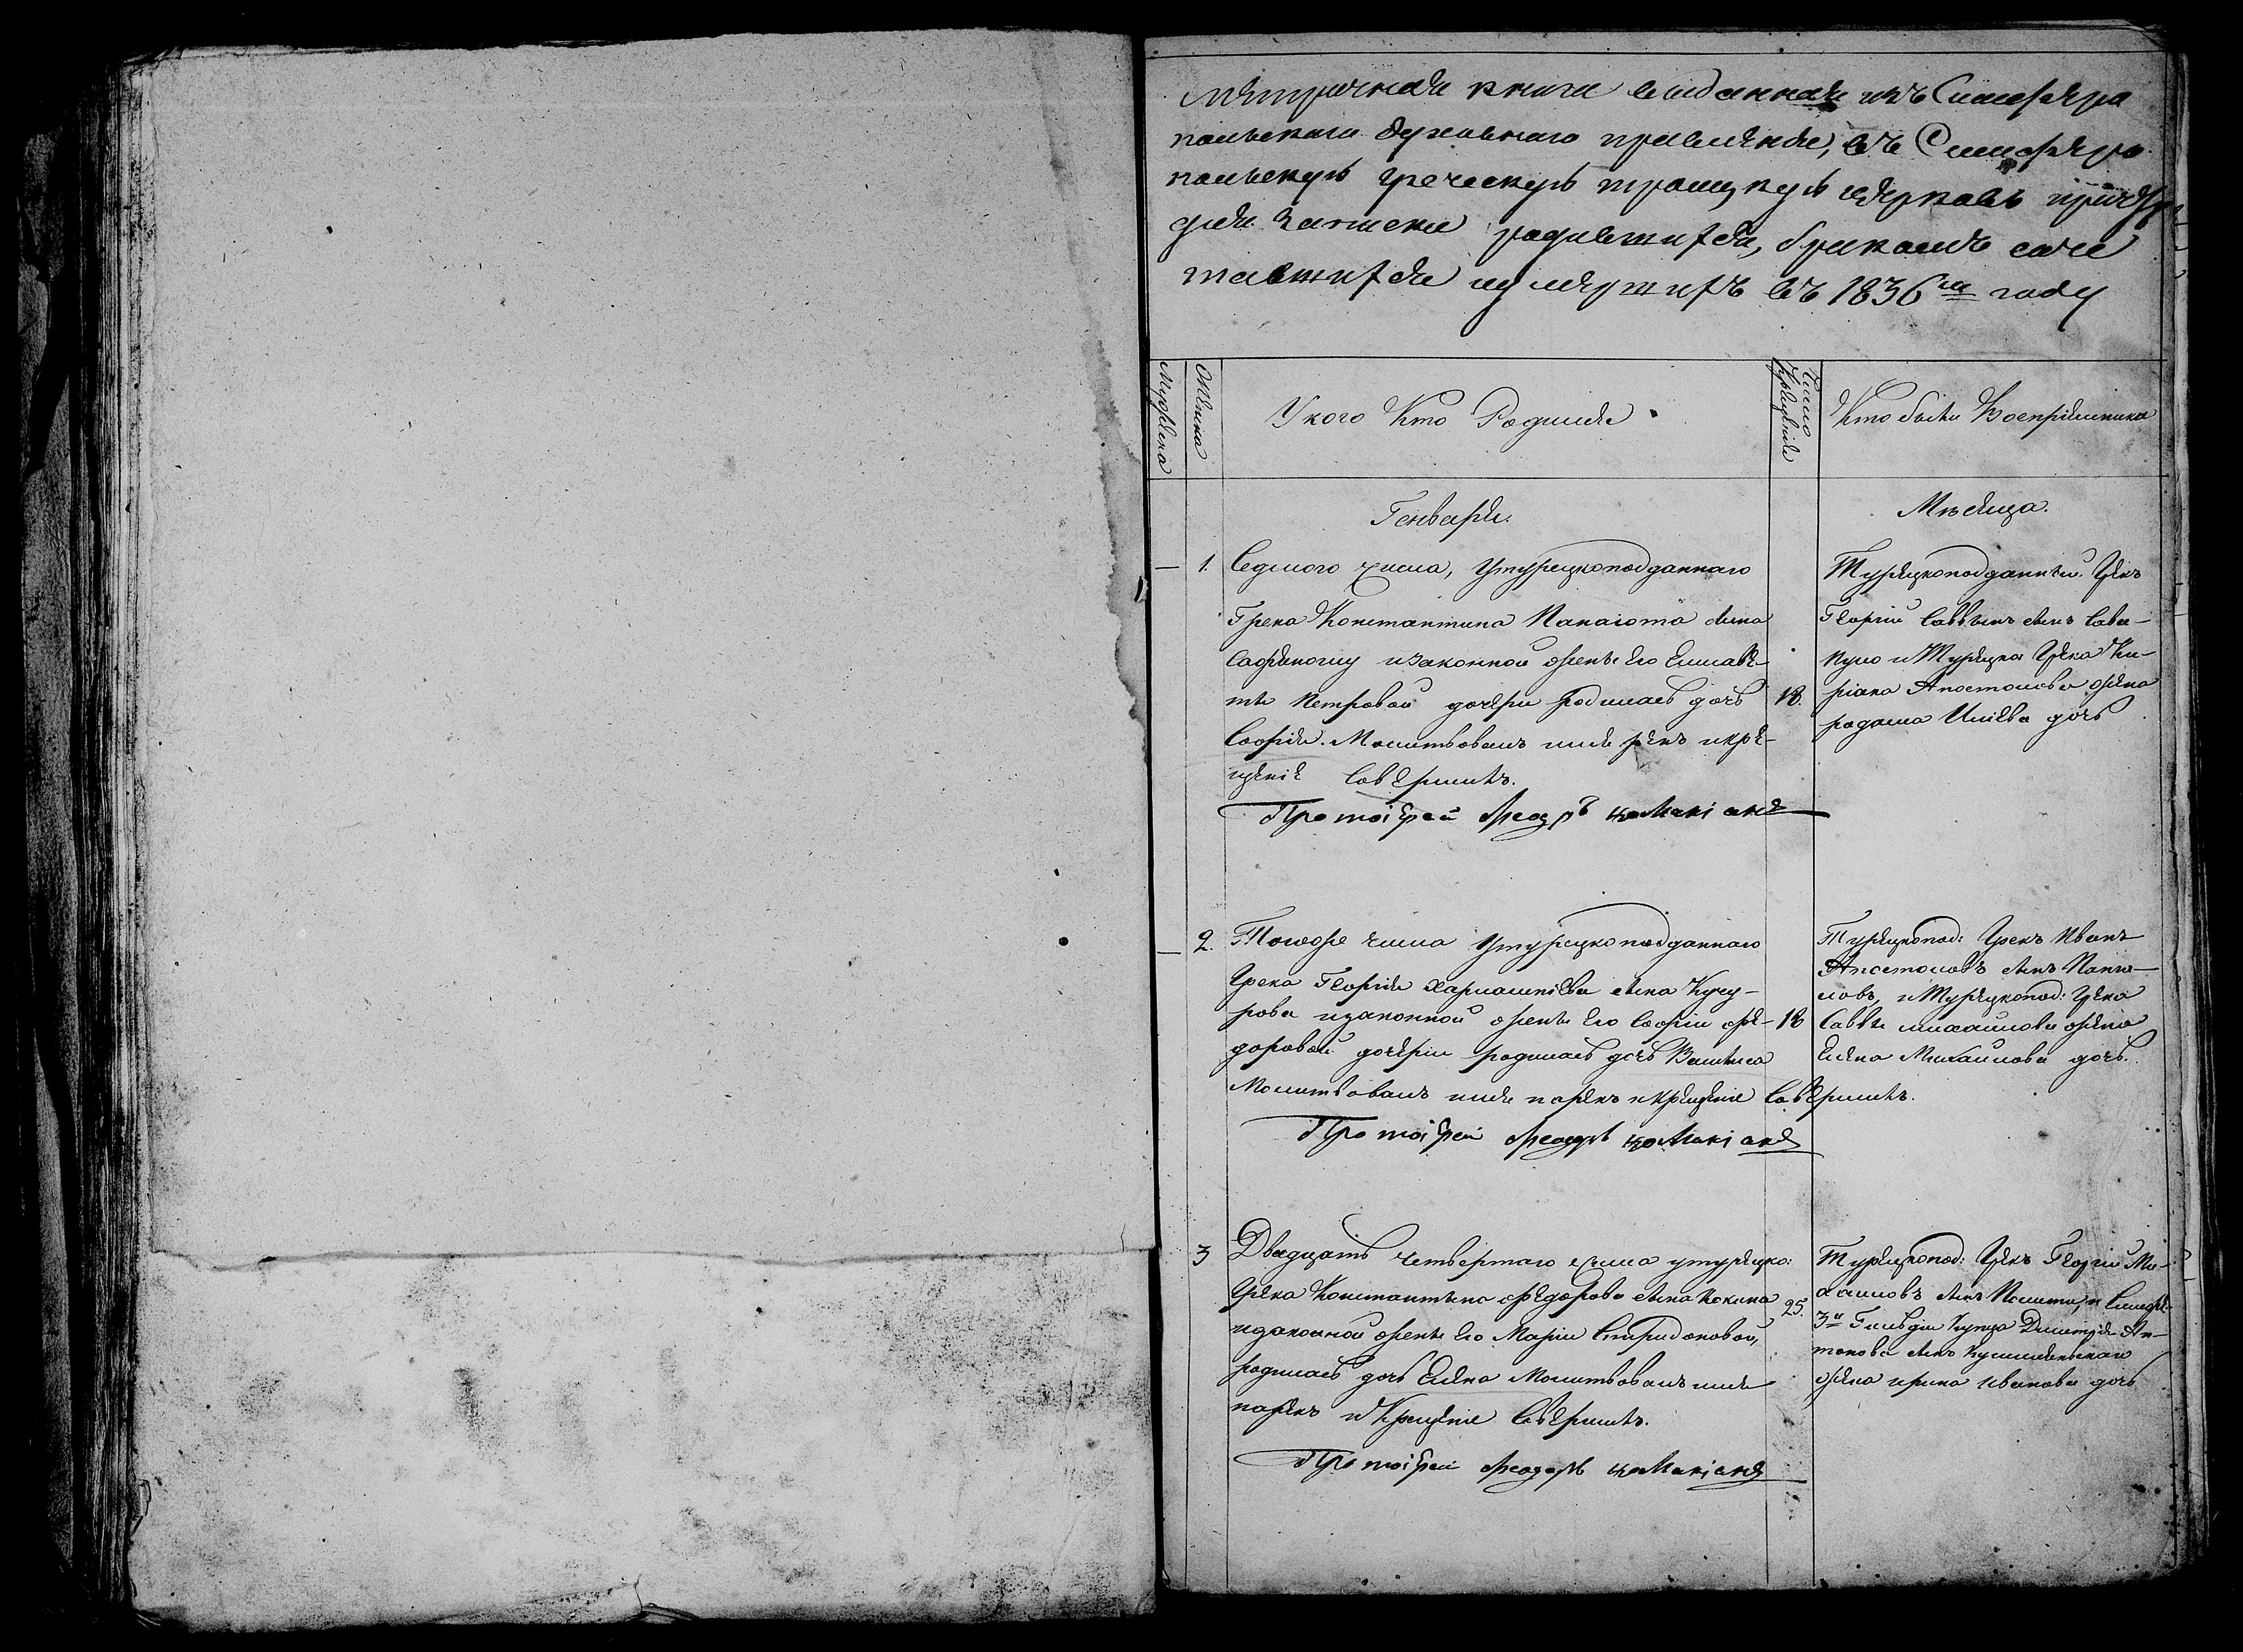 Метрическая книга выданная изъ Симферо
польскаго духовнаго правленія, въ Симферо
польскую греческую троицкую церковь причту
для записки родившихся, бракомъ соче
тавшихся и умершихъ въ 1836мъ году
Мужеска
Женска
У кого Кто Родился
Число Крещенія
Кто были Воспріемники
Генваря.
Мѣсяца.
— 1. Седмого числа, У турецкоподданнаго
Грека Константина Панаіота сына
Софіяному и законной женѣ его Елисаве-
ты Петровой дочери родилась дочь
Софія. Молитвовалъ имя рекъ и кре-
щеніе Совершилъ.
Протоіерей Феодоръ
18.
Турецкоподданный Грекъ
Георгій Саввинъ сынъ Сава-
пуло и Турецка Грека Ки-
ріака Апостолова жена
родама Иліева дочь
— 2. Тогоже числа У турецкоподданнаго
Грека Георгія Харлампіева сына Кучу-
рова и законной женѣ его Софіи Фе-
доровой дочери родилась дочь Василиса
Молитвовалъ имя нарекъ и Крещеніе Совершилъ.
Протоіерей Феодоръ
18
Турецкопод: Грекъ Иванъ
Апостоловъ сынъ
и Турецкопод: Грека
Саввы михаилова жена
Елена Михаилова дочь.
3 Двадцать четвертаго числа у турецко:
Грека Константина Федорова сына Кокина
и законной женѣ его Маріи Спиридоновой,
родилась дочь Елена Молитвовалъ имя
нарекъ и Крещеніе Совершилъ.
Протоіерей Феодоръ
25.
Турецкопод: Грекъ Георгій Ми-
хаиловъ сынъ и Симфе:
3й Гильдіи Купца Дмитрія Ан-
тонова сына
жена ирина иванова дочь